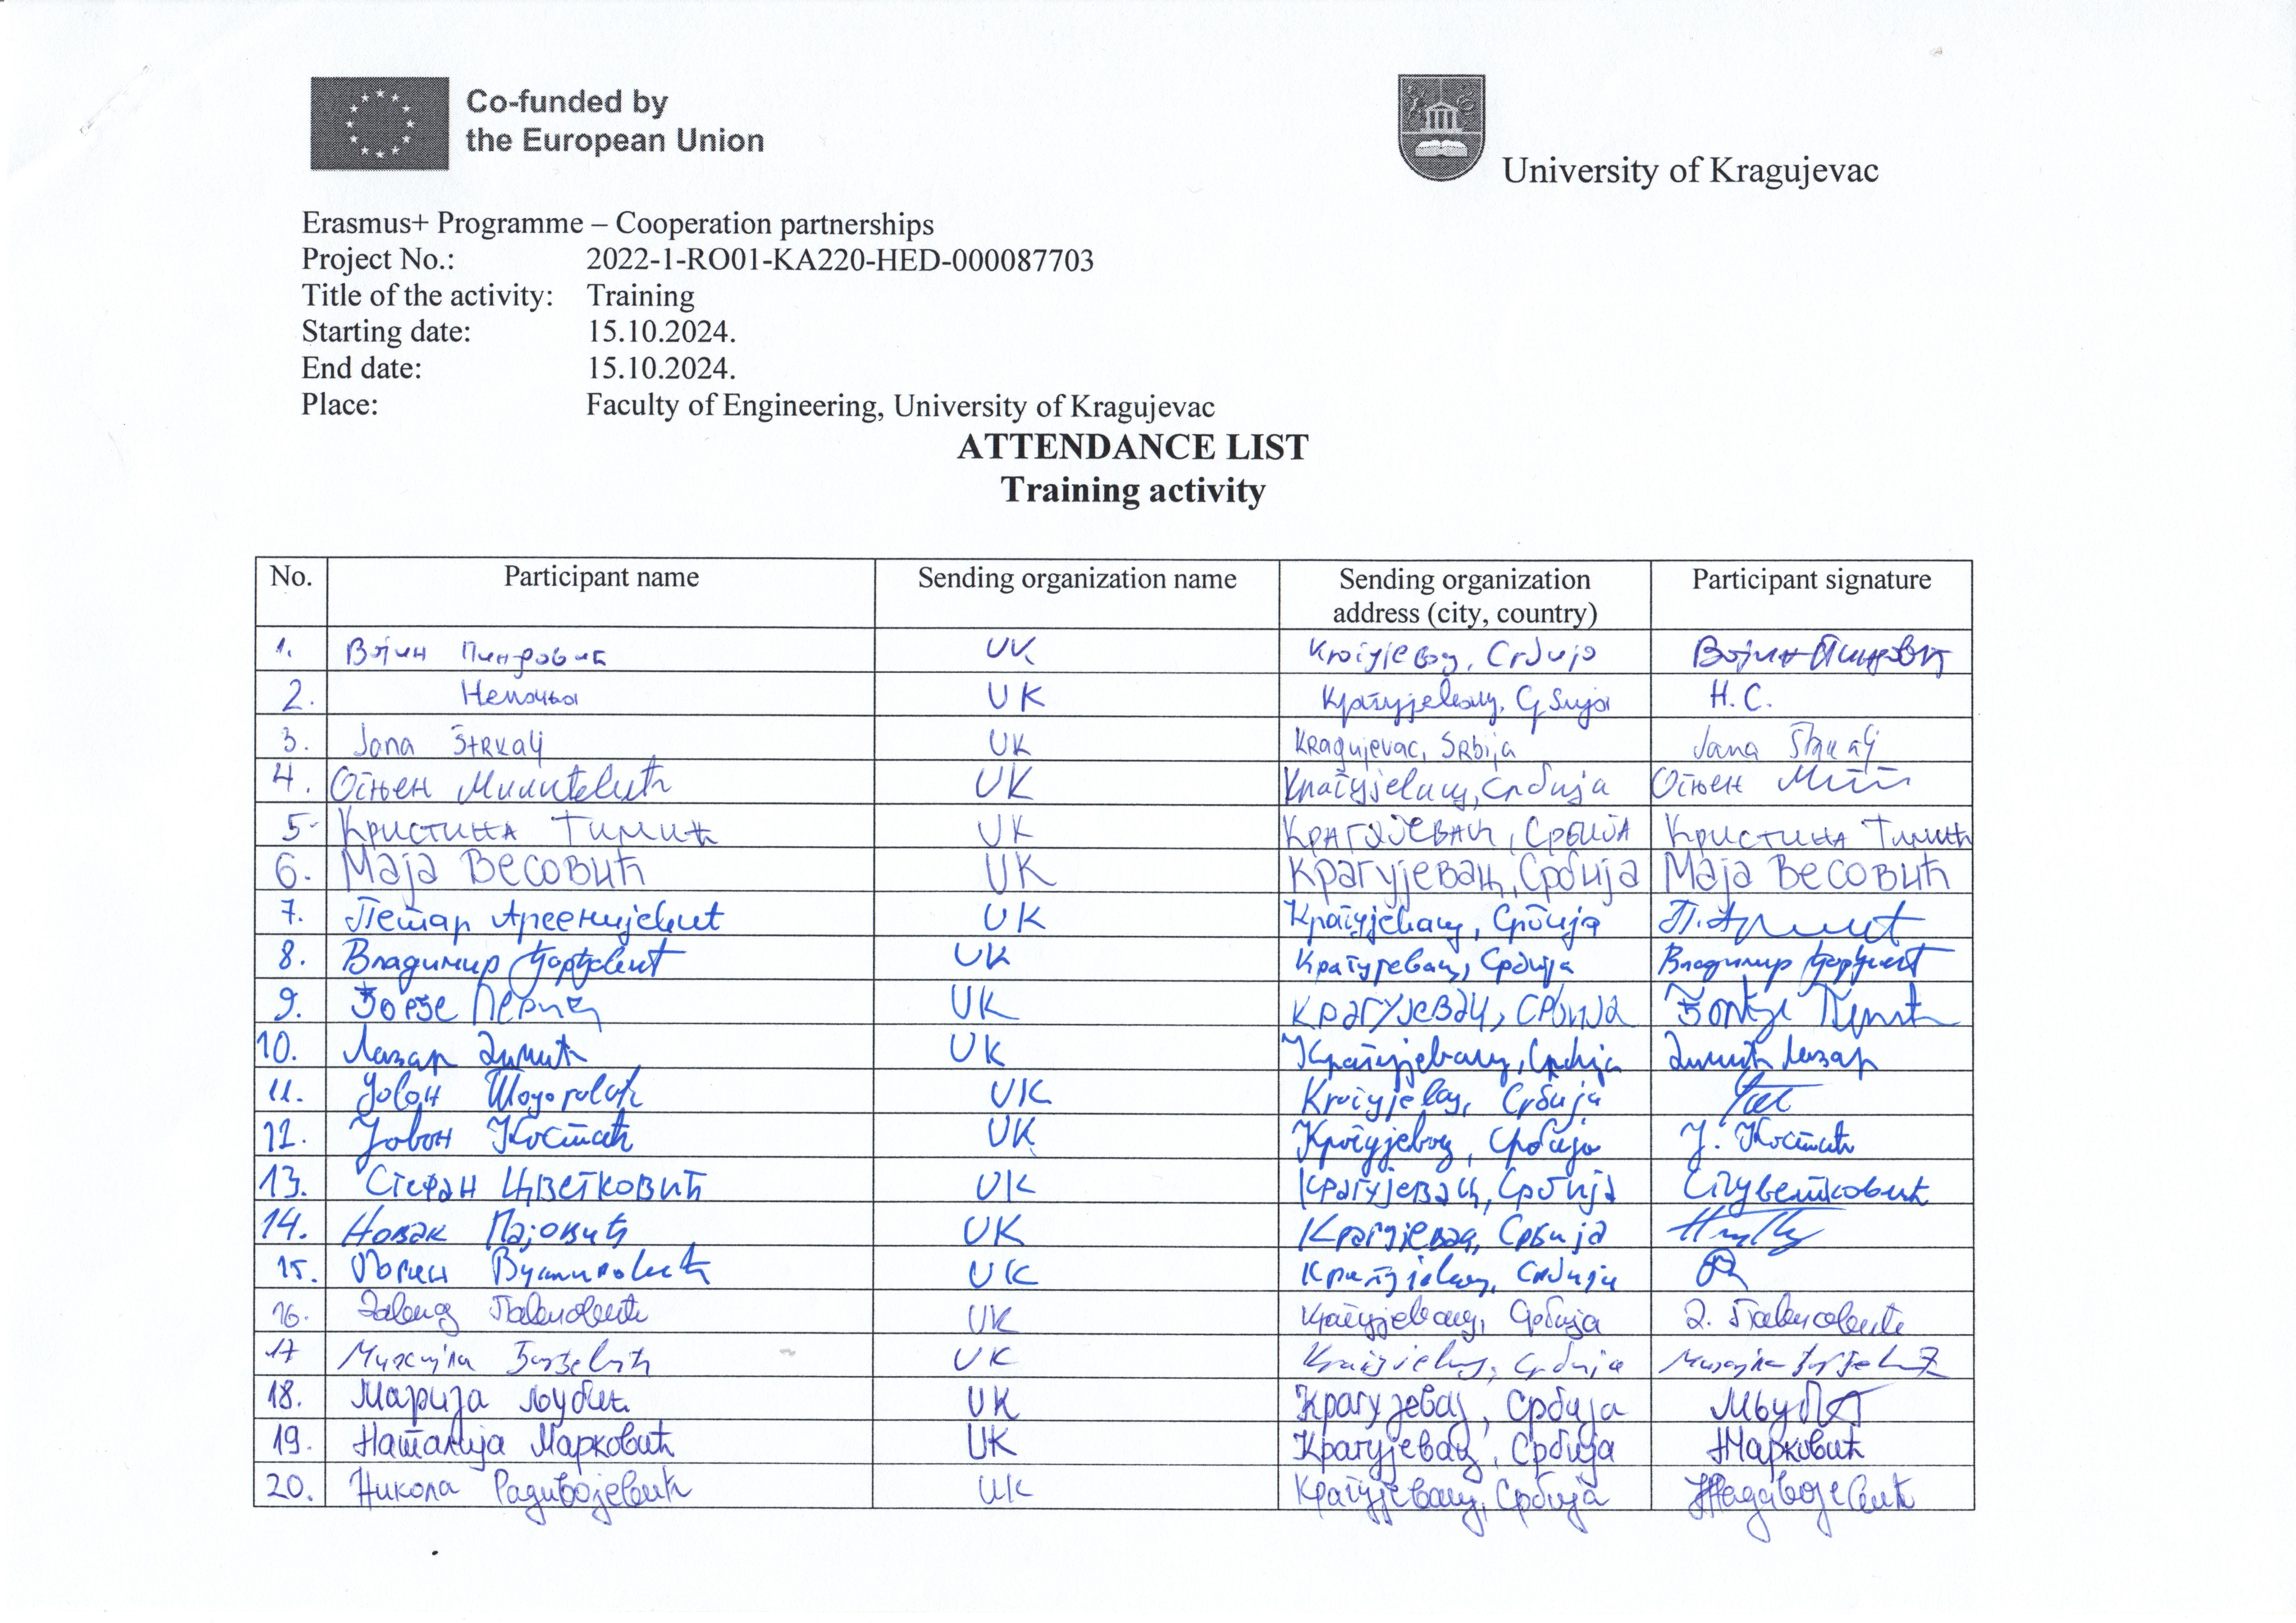 Co-funded by
the European Union
University of Kragujevac
Erasmus+ Programme – Cooperation partnerships
Project No.: 2022-1-RO01-KA220-HED-000087703
Title of the activity: Training
Starting date: 15.10.2024.
End date: 15.10.2024.
Place: Faculty of Engineering, University of Kragujevac
ATTENDANCE LIST
Training activity
No. Participant name Sending organization name Sending organization address (city, country) Participant signature
1. Војин UK Србија Војин
2. UK Крагујевац, Србија Н.С.
3. Jana Štrkalj UK Kragujevac, Srbija Jana Štrkalj
4. Огњен UK Крагујевац, Србија Огњен
5. Кристина Тимић UK Крагујевац, Србија Кристина Тимић
6. Маја Весовић UK Крагујевац, Србија Маја Весовић
7. Петар Арсенијевић UK Крагујевац, Србија
8. Владимир Ђорђевић UK Крагујевац, Србија Владимир Ђорђевић
9. Ђорђе Перић UK Крагујевац, Србија Ђорђе Перић
10. Лазар Димић UK Крагујевац, Србија Димић Лазар
11. Јован UK Крагујевац, Србија
12. Јован Костић UK Крагујевац, Србија Ј. Костић
13. Стефан Цветковић UK Крагујевац, Србија СЦветковић
14. Новак Пајовић UK Крагујевац, Србија
15. UK Крагујевац, Србија
16. UK Крагујевац, Србија
17 Михајла Ђорђевић UK Крагујевац, Србија
18. Марија Љубић UK Крагујевац, Србија
19. Наталија Марковић UK Крагујевац, Србија НМарковић
20. Никола Радивојевић UK Крагујевац, Србија